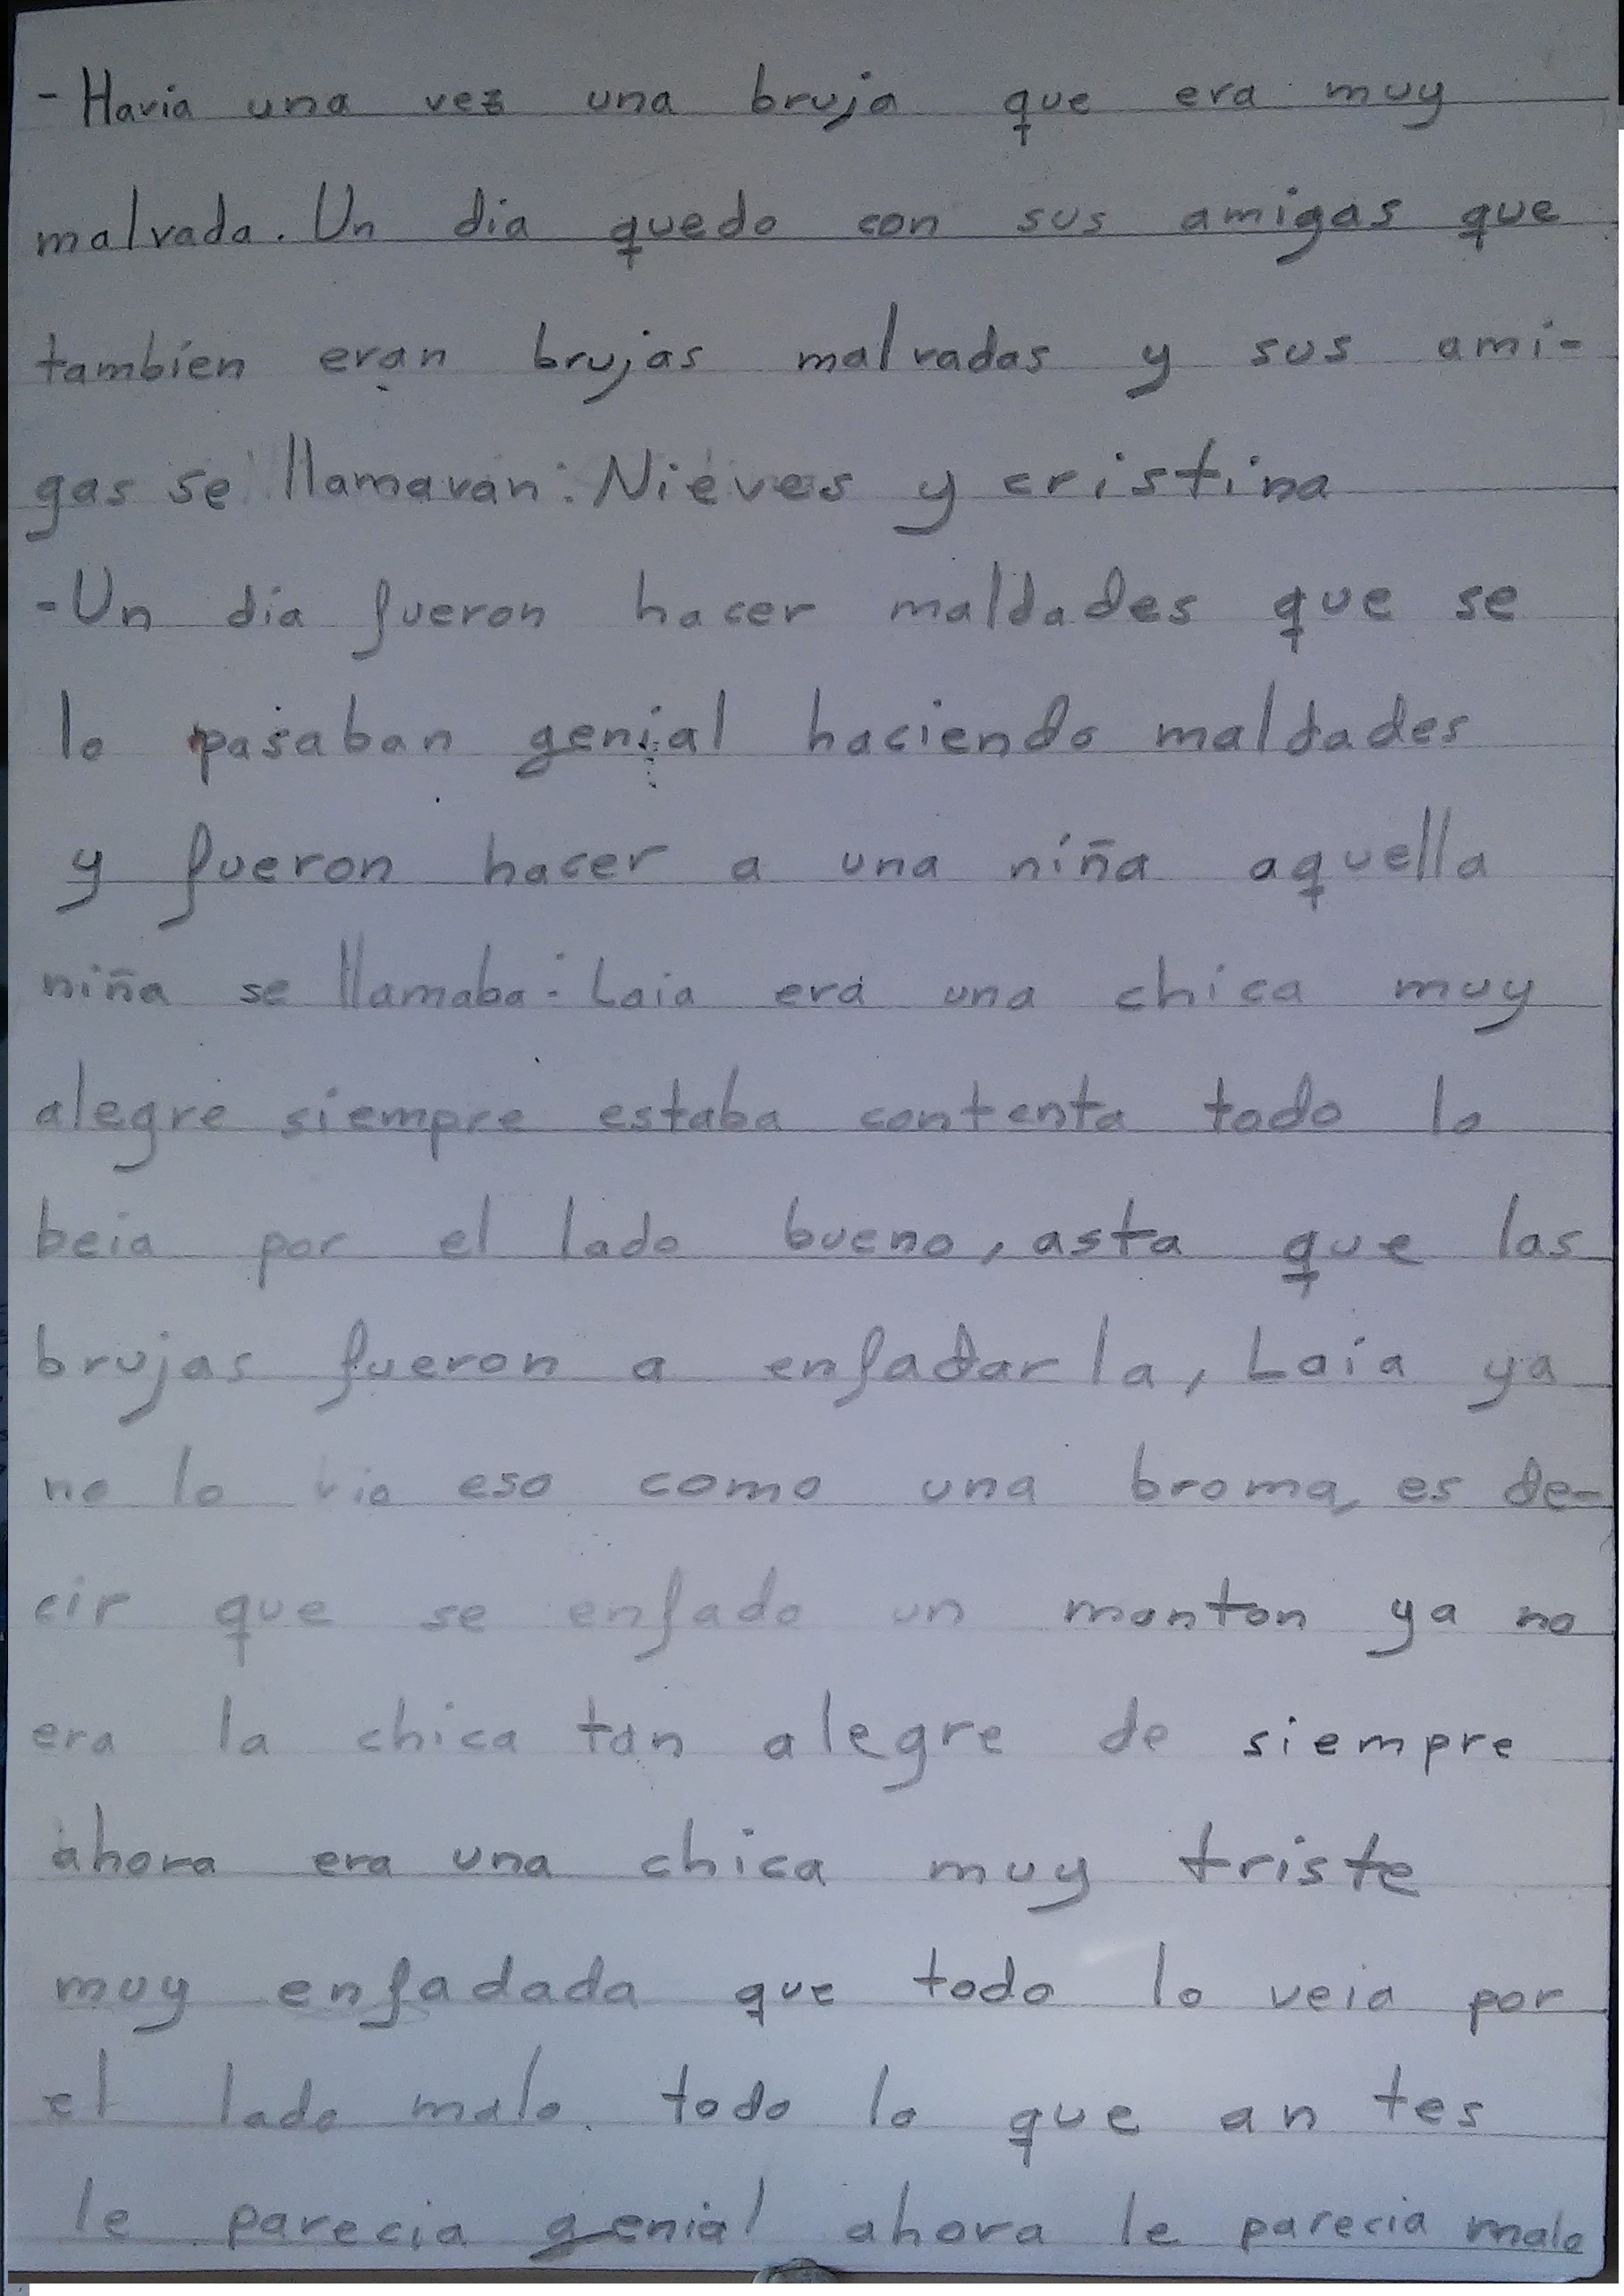 - Havia una vez una bruja que era muy
malvada. Un dia quedo con sus amigas que
tambien eran brujas malvadas y sus ami-
gas se llamavan: Nieves y cristina
- Un dia fueron hacer maldades que se
lo pasaban genial haciendo maldades
y fueron hacer a una niña aquella
niña se llamaba: Laia era una chica muy
alegre siempre estaba contenta todo lo
beia por el lado bueno, asta que las
brujas fueron a enfadarla, Laia ya
no lo vio eso como una broma, es de-
cir que se enfado un monton ya no
era la chica tan alegre de siempre
ahora era una chica muy triste
muy enfadada que todo lo veia por
el lado malo. todo lo que an tes
le parecia genial ahora le parecia malo